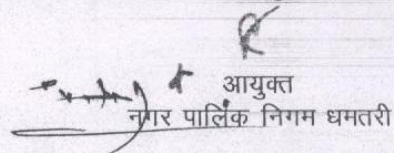 आयुक्त
नगर पालिक निगम धमतरी